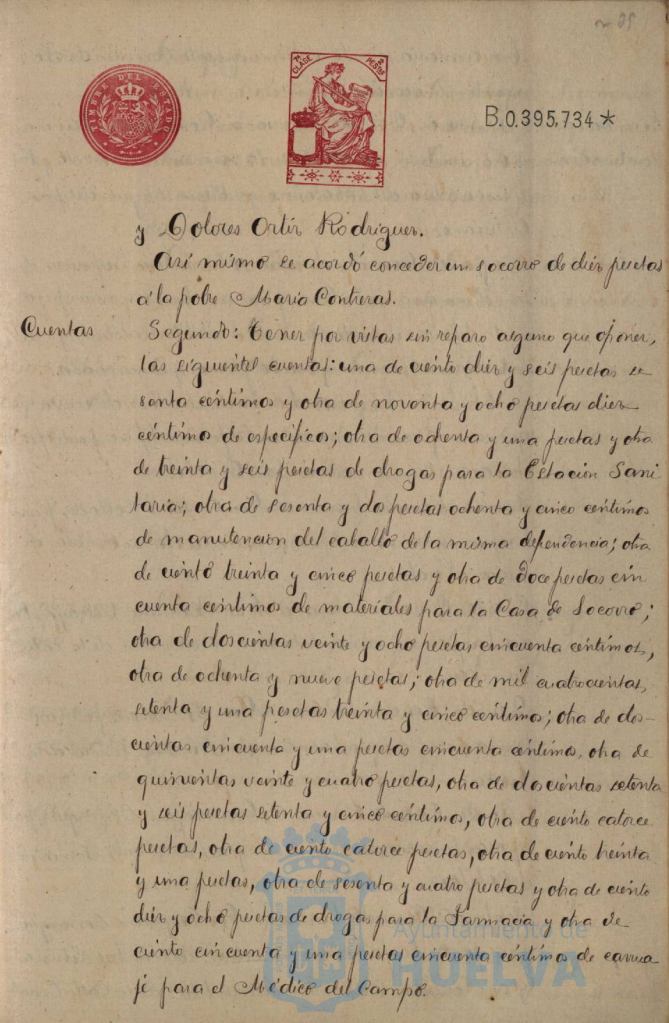 ~ 25
TIMBRE DEL ESTADO
7ª CLASE
2 PESTAS
B.0.395,734*
y Dolores Ortiz Rodriguez.
Asi mismo se acordó conceder un socorro de diez pesetas
á la pobre Maria Contreras.
Cuentas
Segundo: Tener por vistas sin reparo alguno que oponer,
las siguientes cuentas: una de ciento diez y seis pesetas se
senta céntimos y otra de noventa y ocho pesetas diez
céntimos de especificos; otra de ochenta y una pesetas y otra
de treinta y seis pesetas de drogas para la Estación Sani
taria; otra de sesenta y dos pesetas ochenta y cinco centimos
de manutencion del caballo de la misma dependencia; otra
de ciento treinta y cinco pesetas y otra de doce pesetas cin
cuenta centimos de materiales para la Casa de Socorro;
otra de doscientas veinte y ocho pesetas cincuenta centimos,
otra de ochenta y nueve pesetas; otra de mil cuatrocientas,
setenta y una pesetas treinta y cinco céntimos; otra de dos-
cientas cincuenta y una pesetas cincuenta céntimos, otra de
quinientas veinte y cuatro pesetas, otra de doscientas setenta
y seis pesetas setenta y cinco céntimos, otra de ciento catorce
pesetas, otra de ciento catorce pesetas, otra de ciento treinta
y una pesetas, otra de sesenta y cuatro pesetas y otra de ciento
diez y ocho pesetas de drogas para la Farmacia y otra de
ciento cincuenta y una pesetas cincuenta céntimos de carrua
je para el Médico del Campo.
Ayuntamiento de
HUELVA